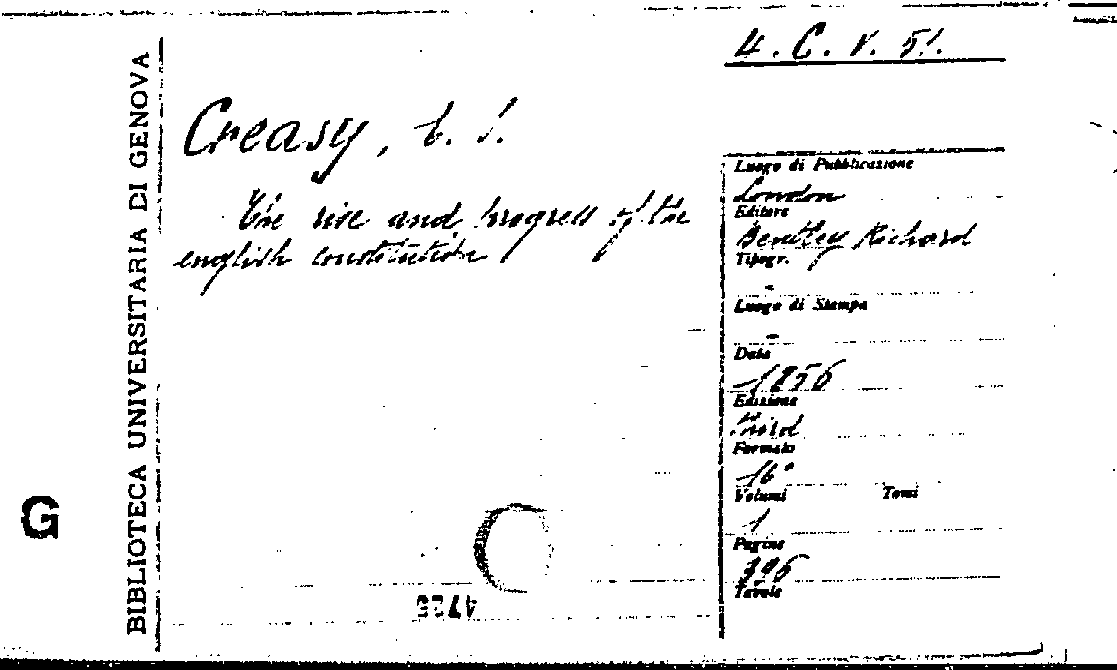 4. C. V. 51.
BIBLIOTECA UNIVERSITARIA DI GENOVA
Creasy, E. S.
The rise and progress of the
english constitution
Luogo di Pubblicazione
London
Editore
Bentley Richard
Tipogr.
-
Luogo di Stampa
-
Data
1856
Edizione
Third
Formato
16°
Volumi Tomi
1
Pagine
396
Tavole
G